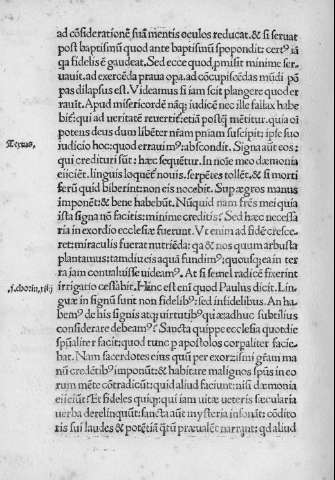 ad cōsiderationē suā mentis oculos reducat. & si seruat
post baptismū quod ante baptismū spopondit: certꝰ iā
qa fidelis ē gaudeat. Sed ecce quod ꝓmisit minime ser-
uauit. ad exercēda praua opa. ad cōcupiscēdas mūdi pō
pas dilapsus est. Videamus si iam scit plangere quod er
rauit. Apud misericordē nāq; iudicē nec ille fallax habe
bit̄: qui ad ueritatē reuertit̄. etiā postq̄ mētitur. quia oī
potens deus dum libēter nr̄am pniam suscipit: ipse suo
iudicio hoc: quod errauimꝰ: abscondit. Signa aūt eos:
Textus.
qui credituri sūt: hæc sequētur. In noīe meo dæmonia
eiiciēt. linguis loquēt̄ nouis. serpētes tollēt. & si morti
ferū quid biberint: non eis nocebit. Sup ægros manus
imponēt: & bene habebūt. Nūquid nam frēs mei quia
ista signa nō facitis: minime creditis? Sed hæc necessa
ria in exordio ecclesiæ fuerunt. Vt enim ad fidē cresce-
ret: miraculis fuerat nutriēda: qa & nos quum arbusta
plantamus: tamdiu eis aquā fundimꝰ: quousq; ea in ter
ra iam conualuisse uideamꝰ. At si semel radicē fixerint
irrigatio cessabit. Hinc est eni quod Paulus dicit. Lin-
guæ in signū sunt non fidelibꝰ: sed infidelibus. An ha-
bemꝰ de his signis atq; uirtutibꝰ quæ adhuc subtilius
considerare debeamꝰ? Sancta quippe ecclesia quotdie
spūaliter facit: quod tunc p apostolos corpaliter facie-
bat. Nam sacerdotes eius quū per exorzismi gr̄am ma
nū credētibꝰ imponūt: & habitare malignos spūs in eo
rum mēte cōtradicūt: quid aliud faciunt: nisi dæmonia
eiiciūt? Et fideles quiq; qui iam uitæ ueteris sæcularia
uerba derelinquūt: sancta aūt mysteria insonāt: cōdito
ris sui laudes & potētiā q̄tū præualēt narrant: qd aliud